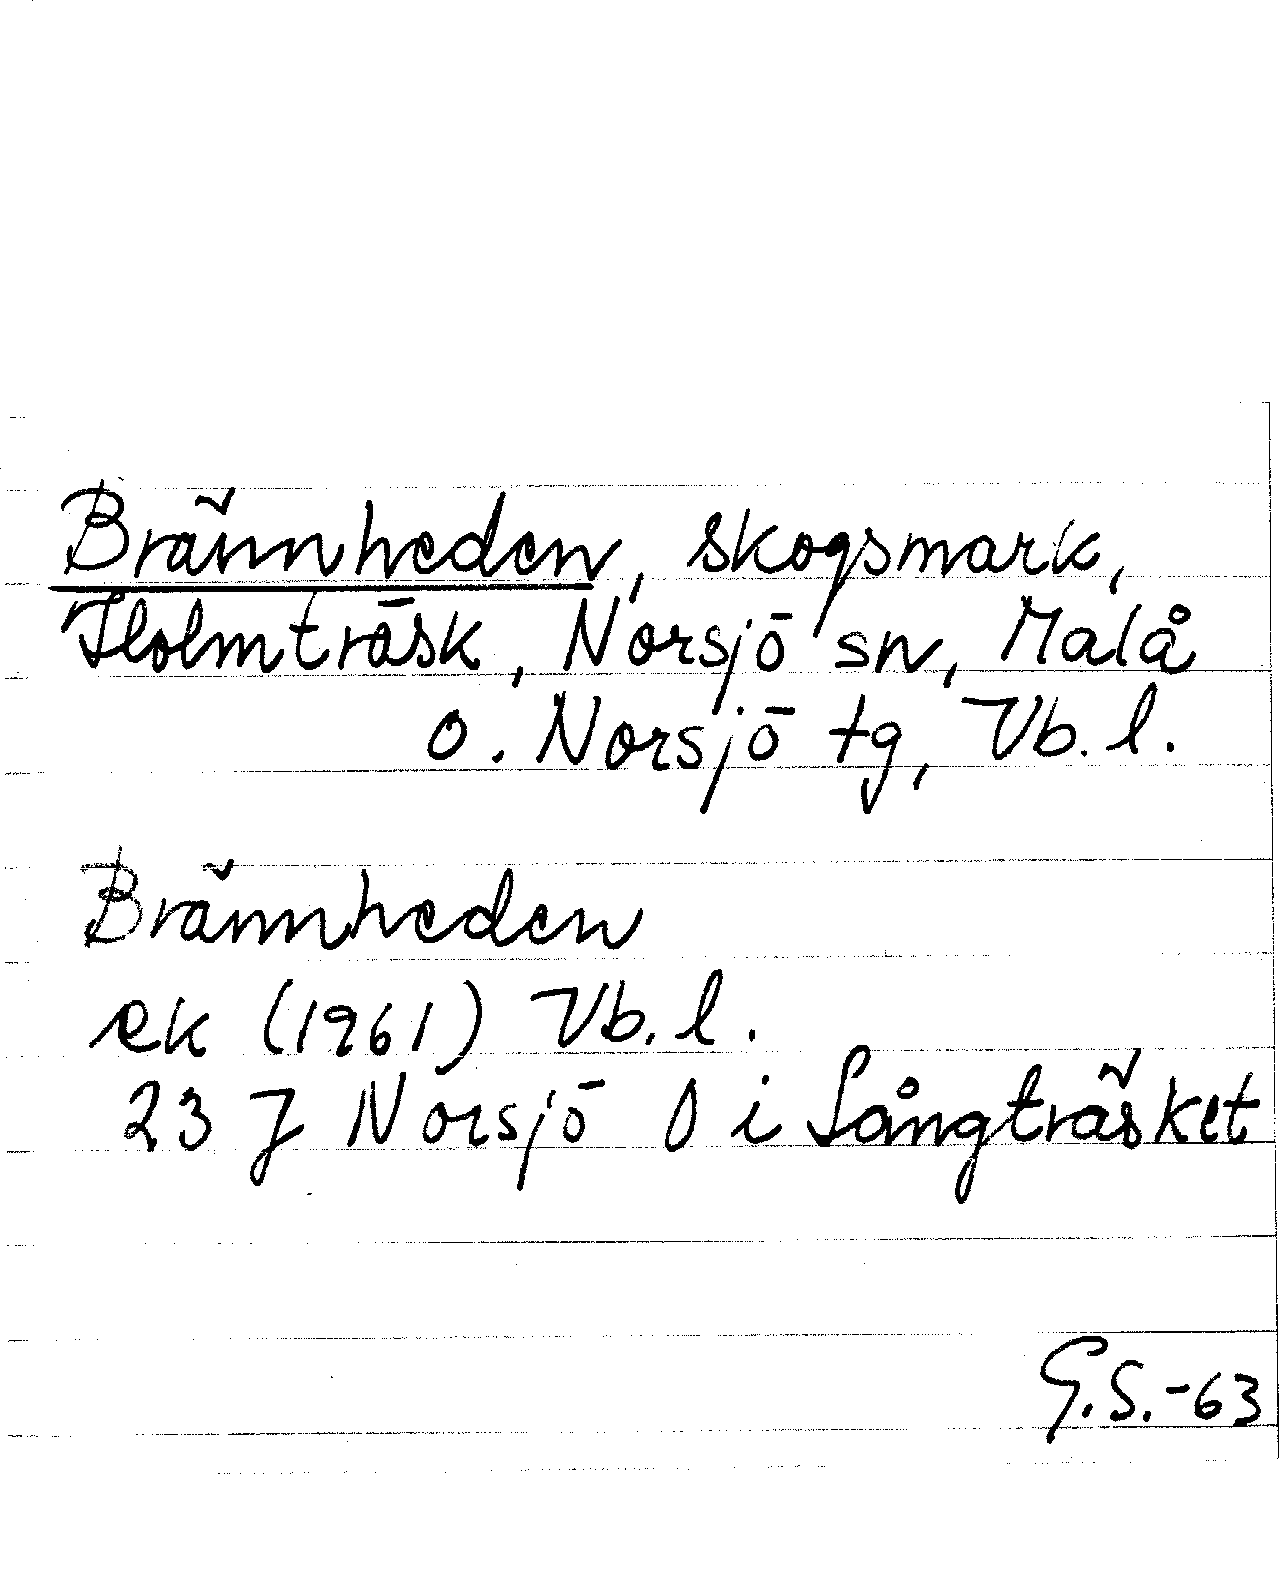 Brännheden, skogsmark,
Holmträsk, Norsjö sn, Malå
o. Norsjö tg, Vb. l.
Brännheden
ek (1961) Vb. l.
23 J Norsjö O i Långträsket
G.S.-63